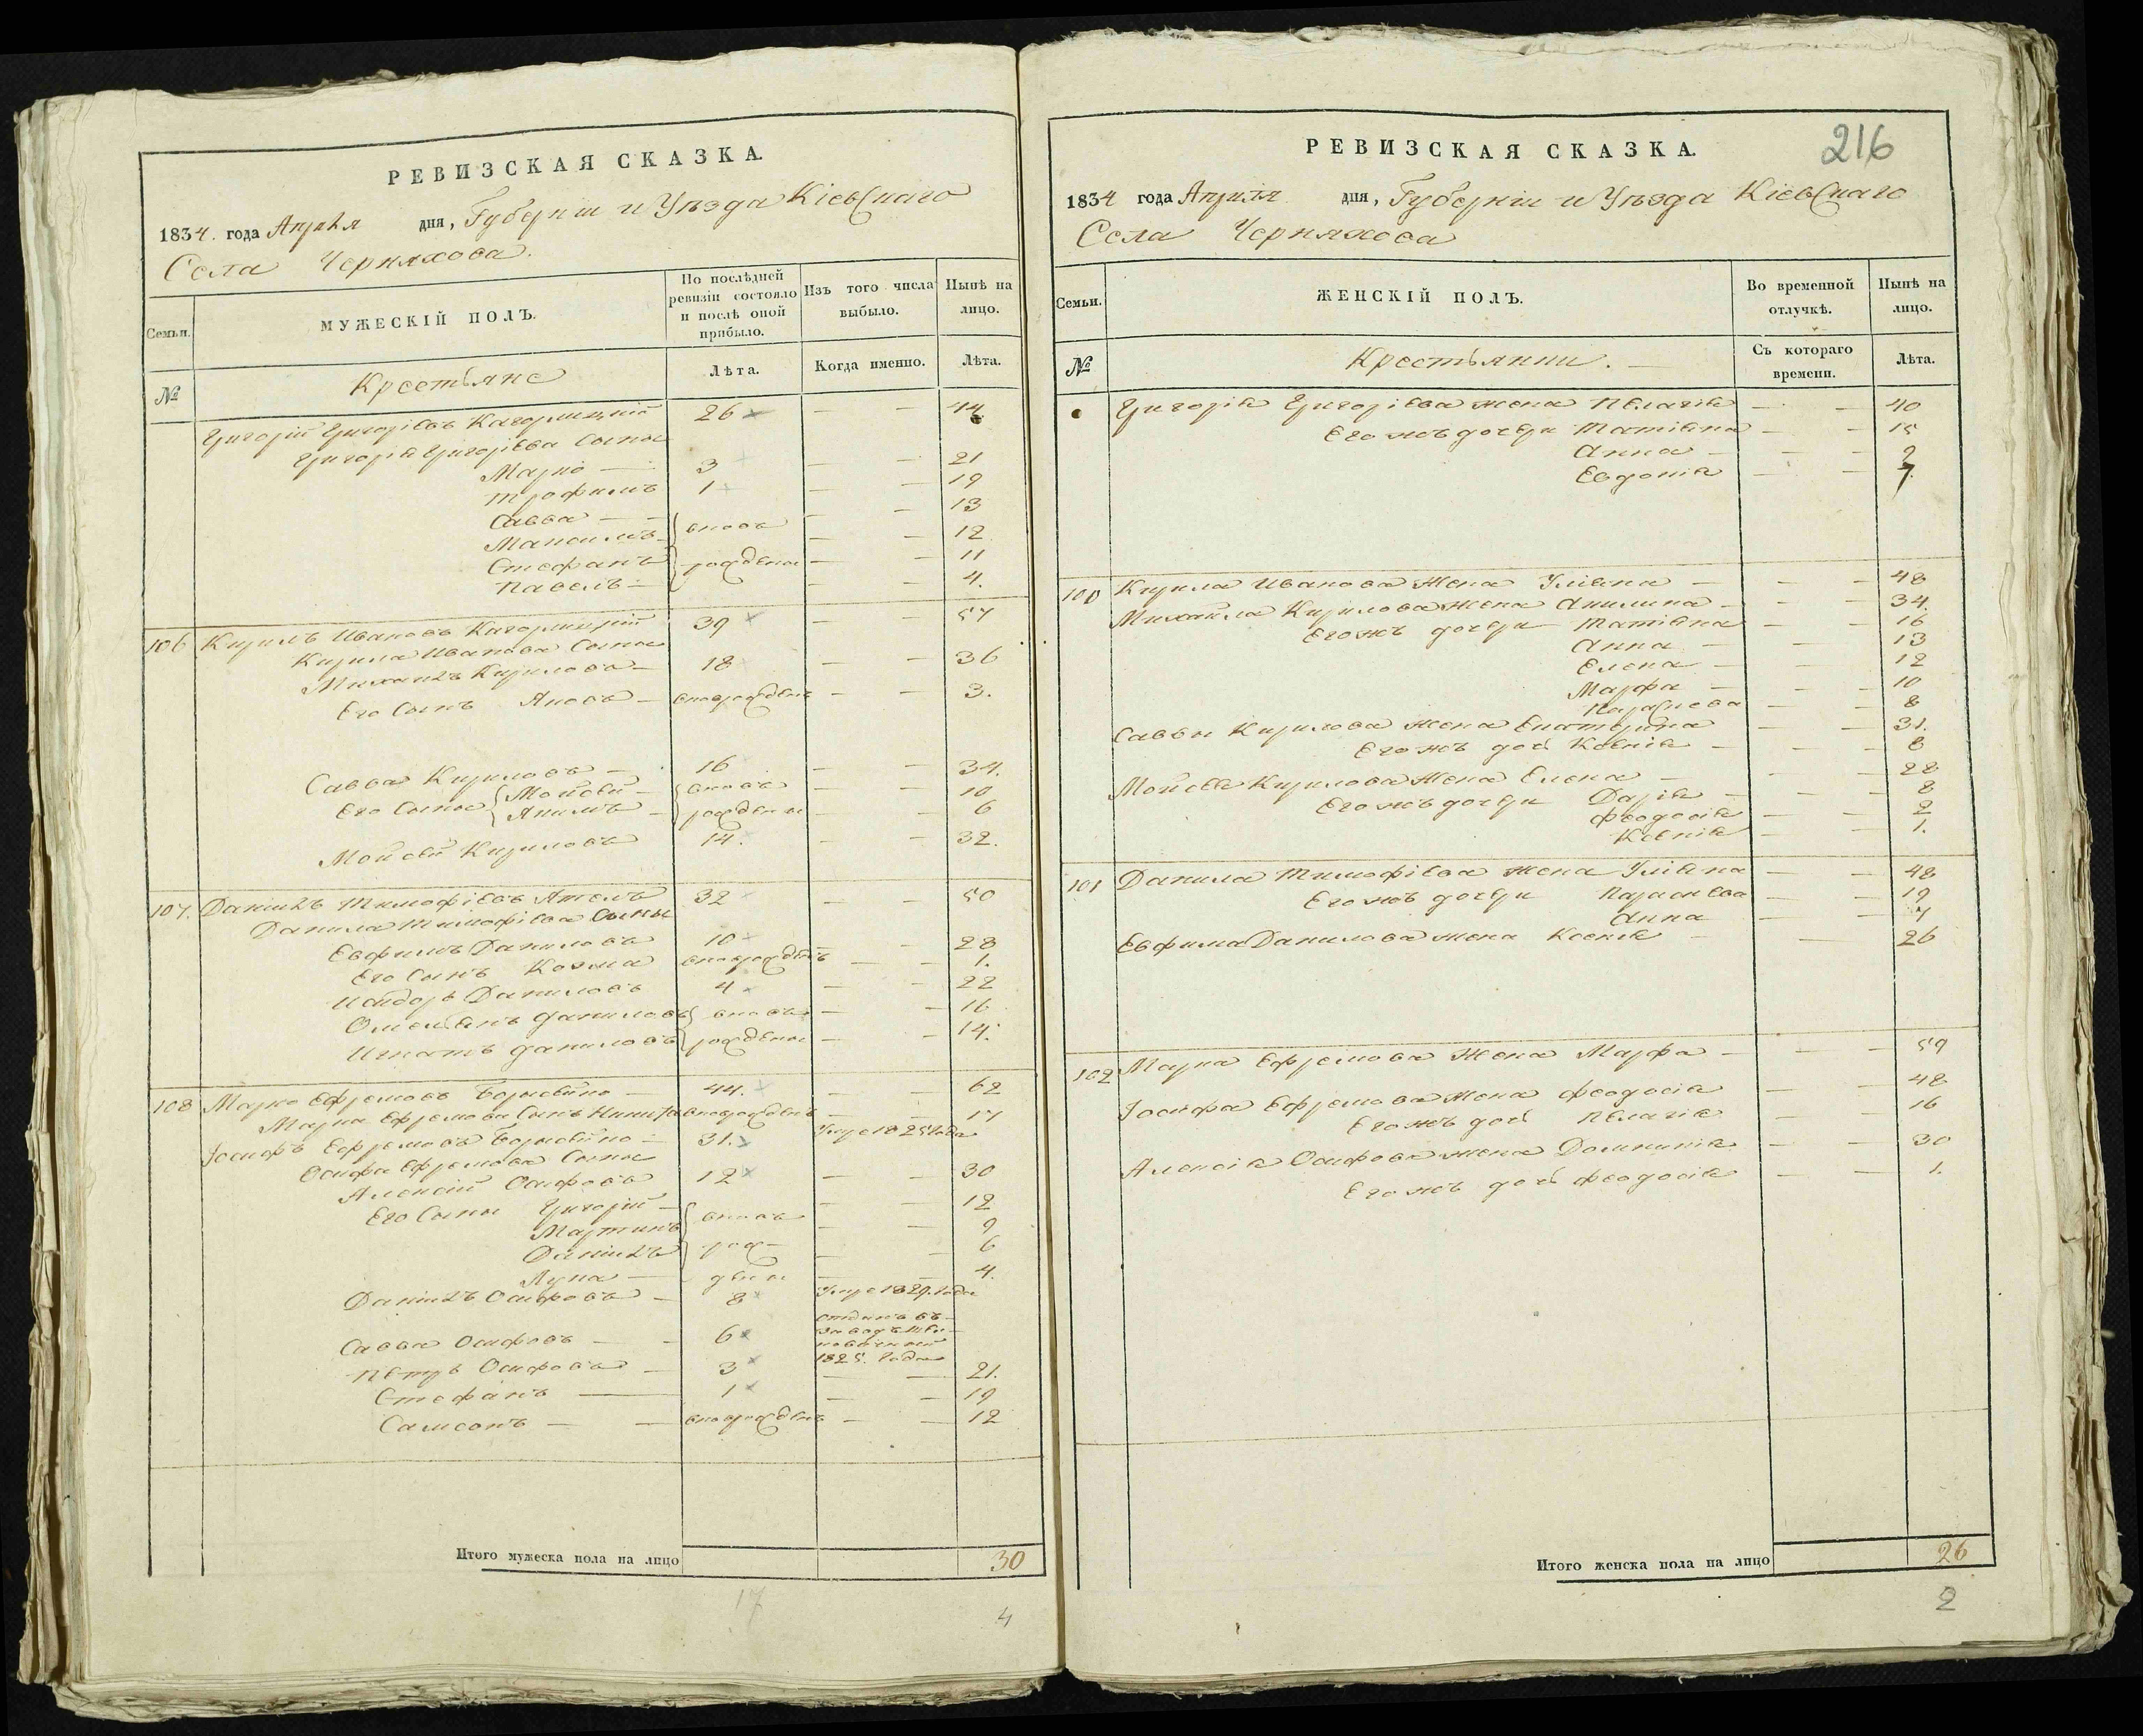 РЕВИЗСКАЯ СКАЗКА.
1834. года Апреля дня, Губернии и Уѣзда Кіевскаго
Села Черняхова.
Семьи.
МУЖЕСКІЙ ПОЛЪ.
По послѣдней ревизіи состояло и послѣ оной прибыло.
Изъ того числа выбыло.
Нынѣ на лицо.
№
Крестьяне
Лѣта.
Когда именно.
Лѣта.
Григорій Григоріевъ Кагорлицкій 26 — — 44
Григорія Григоріева Сыны
Марко — 3 — — 21
Трофимъ 1 — — 19
Савва — вновь — — 13
Максимъ — — 12
Стефанъ рожденны — — 11
Павелъ — — — 4.
106 Кирилъ Ивановъ Кагорлицкій 39 — — 57
Кирила Иванова Сыны
Михаилъ Кириловъ — 18 — — 36
Его Сынъ Яковъ — вноврожденъ — — 3.
Савва Кириловъ — 16 — — 34.
Его Сыны Мойсей — вновь — — 10
Акимъ — рожденны — — 6
Мойсей Кириловъ 14. — — 32.
107. Даніилъ Тимофіевъ 32 — — 50
Данила Тимофіева Сыны
Евфимъ Даниловъ 10 — — 28
Его Сынъ Козма вноврожденъ — — 1.
Исидоръ Даниловъ 4 — — 22
Омельянъ Даниловъ вновь — — 16
Игнатъ Даниловъ рожденны — — 14.
108 Марко Ефремовъ — 44. — — 62
Марка Ефремова Сынъ Никита вноврожденъ — — 17
Іосифъ Ефремовъ — 31. Умре 1825 Года
Осифа Ефремова Сыны
Алексій Осифовъ 12 — — 30
Его Сыны Григорій — вновь — — 12
Мартинъ — — 9
Даніилъ рож- — — 6
Лука — дены — — 4.
Даніилъ Осифовъ — 8 Умре 1829. Года
Савва Осифовъ — — 6 отданъ въ
1825. Года
Петръ Осифовъ — 3 — — 21.
Стефанъ — 1 — — 19
Самсонъ — — вноврожденъ — — 12
Итого мужеска пола на лицо 30
17
4
216
РЕВИЗСКАЯ СКАЗКА.
1834 года Апреля дня, Губерніи и Уѣзда Кіевскаго
Села Черняхова
Семьи.
ЖЕНСКІЙ ПОЛЪ.
Во временной отлучкѣ.
Нынѣ на лицо.
№
Крестьянки. —
Съ котораго времени.
Лѣта.
Григорія Григоріева жена Пелагія — — 40
Его жъ дочери Татіяна — — 15
Анна — — — 9
Евдокія — — 7.
100 Кирила Иванова Жена Уліяна — — — 48
Михайла Кирилова жена Акилина — — — 34.
Его жъ дочери Татіяна — — 16
Анна — — 13
Елена — — 12
Марфа — — — 10
Параскева — — 8
Саввы Кирилова жена Екатерина — — 31.
Его жъ дочь Ксенія — — — 8
Мойсея Кирилова Жена Елена — — — 28
Его жъ дочери Дарія — — — 8
Феодосія — — 2
Ксенія — — 1.
101 Данила Тимофіева жена Уліяна — — 48
Его жъ дочери Параскева — — 19
Анна — — 7
Евфима Данилова жена Ксенія — — 26
102 Марка Ефремова Жена Марфа — — — 59
Іосифа Ефремова Жена Феодосія — — 48
Его жъ дочь Пелагія — — 16
Алексія Осифова жена Домникія — — 30
Его жъ дочь Феодосія — — 1.
Итого женска пола на лицо 26
2